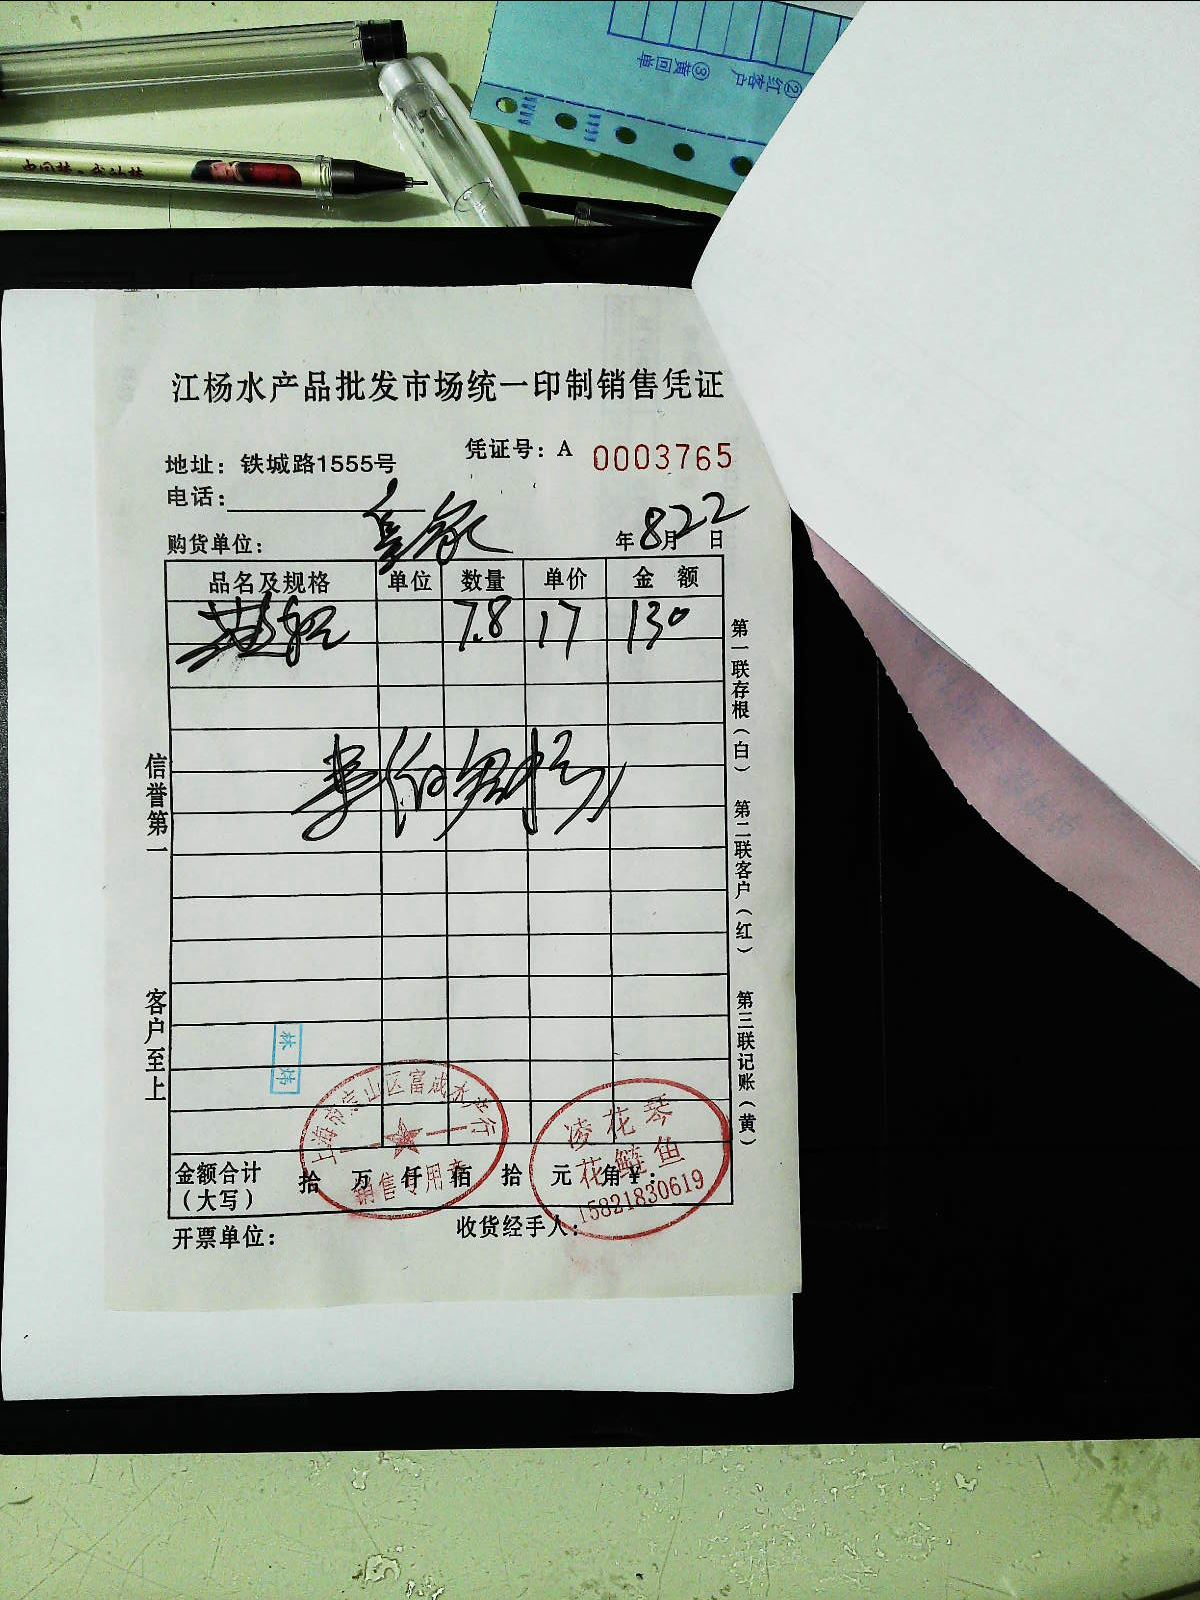 中国梦·我的梦
②红客户
③黄回单
江杨水产品批发市场统一印制销售凭证
凭证号：A 0003765
地址：铁城路1555号
电话：
购货单位： 年8月22日
品名及规格 单位 数量 单价 金 额
7.8 17 130
信誉第一
客户至上
第一联存根（白）
第二联客户（红）
第三联记账（黄）
林炜
上海市宝山区富成水产行
销售专用章
凌花琴
花鲢鱼
15821830619
金额合计（大写） 拾 万 仟 佰 拾 元 角￥：
开票单位： 收货经手人：